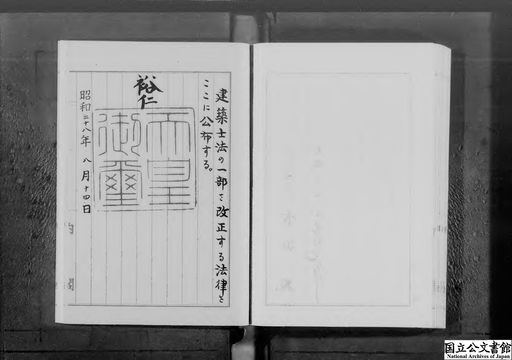 建築士法の一部を改正する法律を
ここに公布する。
裕仁
天皇
御璽
昭和二十八年八月十四日
国立公文書館
National Archives of Japan